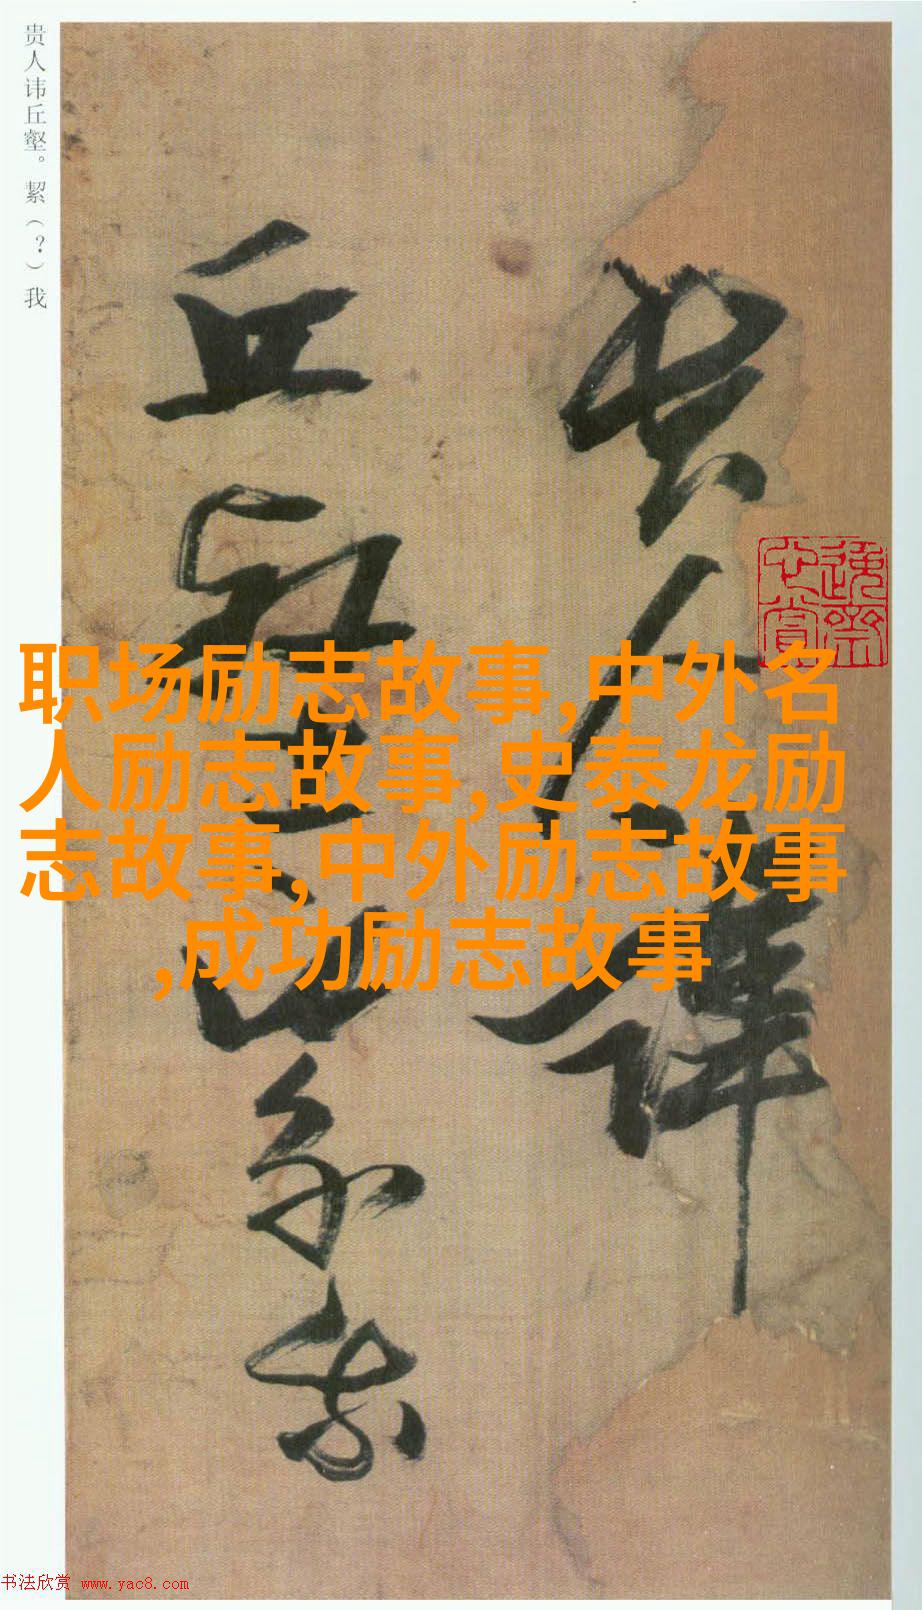 贵人讳丘壑。絜（？）我
贵人讳
丘壑。絜我
职场励志故事,中外名
人励志故事,史泰龙励
志故事,中外励志故事
,成功励志故事
书法欣赏 www.yac8.com